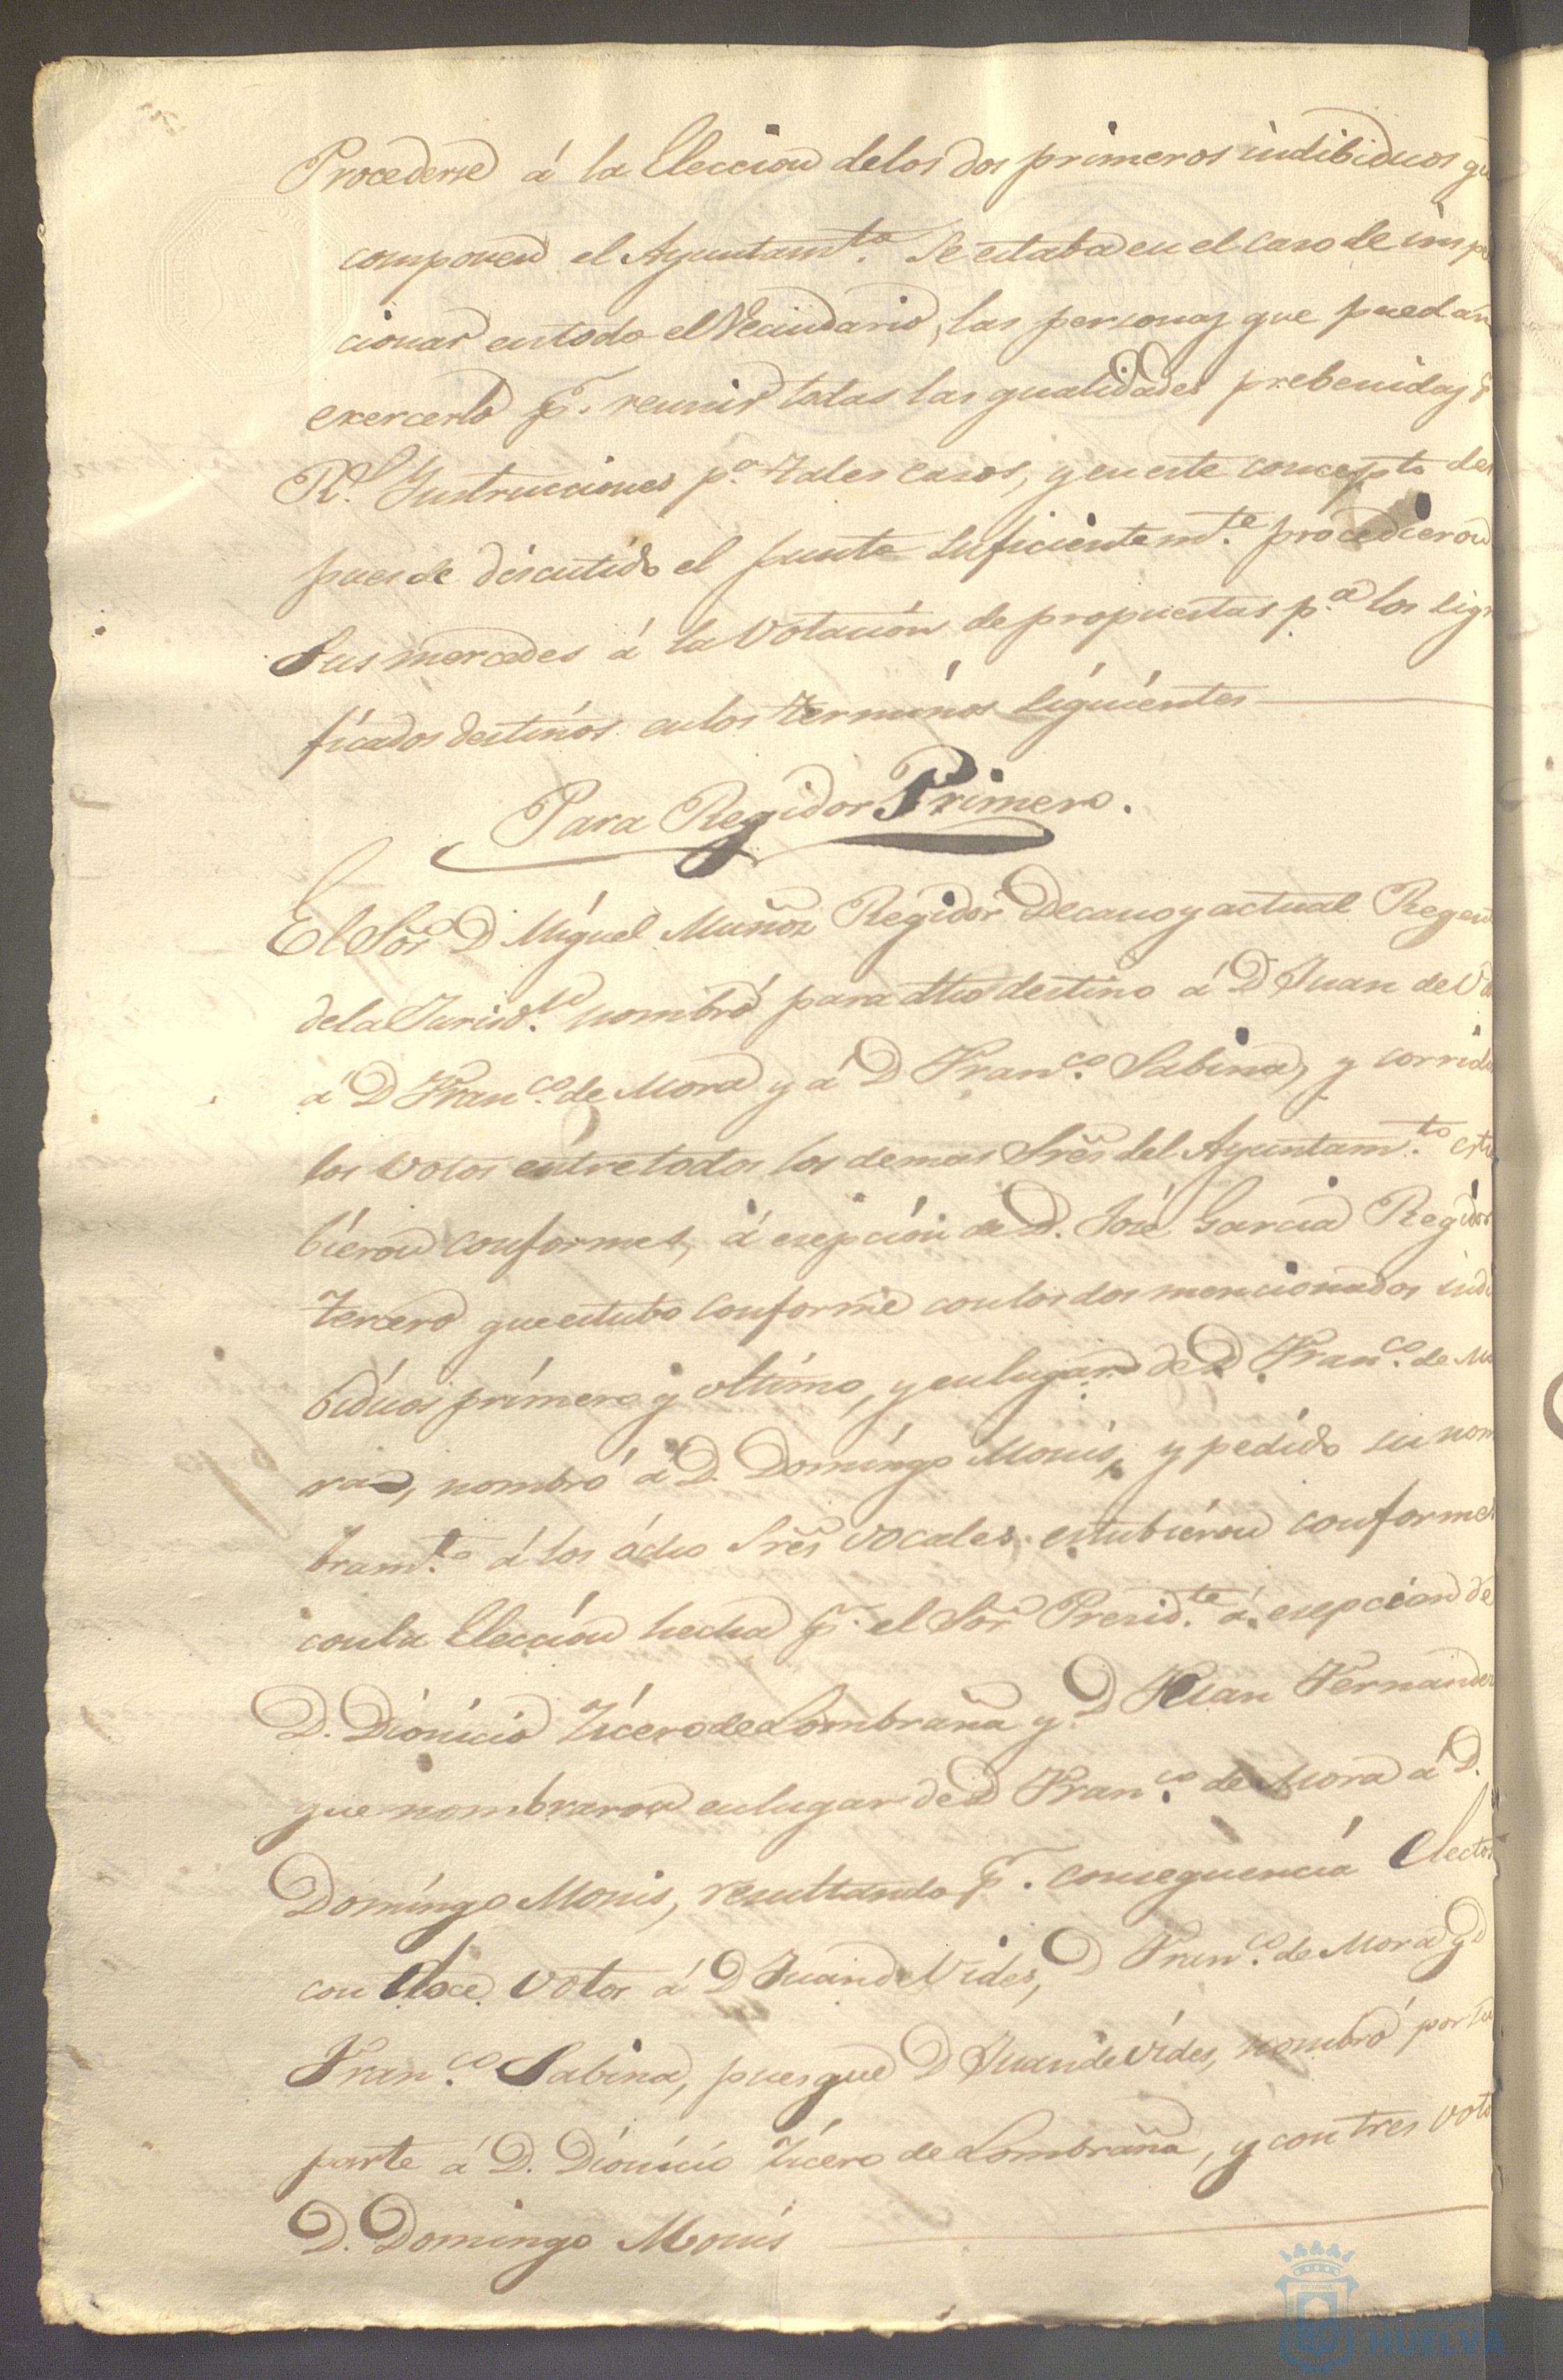 Procederse á la Eleccion delos dos primeros indibiduos qu
componen el Ayuntam.to Se estaba en el caso de inspe
cionar entodo el Vecindario, las personas que puedan
exercerlo p.r reunir todas las qualidades prebenidas
R.s Instrucciones p.a tales casos, y en este concepto des
pues de discutido el punto suficientem.te procedieron
Sus mercedes á la Votación de propuestas p.a los sign
ficados destinos en los terminos siguientes
Para Regidor Primero.
El Sor D Miguel Muñoz Regidor Decano y actual Regen
dela Jurisd.n nombró para dho destino á D Juan de Vi
á D Fran.co de Mora y á D Fran.co Sabina, y corrido
los votos entre todos los demas Sres del Ayuntam.to estu
bieron conformes, á esepción de D. José Garcia Regidor
tercero que estubo conforme con los dos mencionados indi
biduos primero y ultimo, y en lugar de D Fran.co de Mo
ra, nombró á D. Domingo Monis, y pedido su nom
bram.to á los ocho Sres vocales estubieron conformes
con la Elección hecha p.r el Sor Presid.te á esepcion de
D. Dionicio Ticero de Lombraña y D Juan Fernandez
que nombraron en lugar de D Fran.co de Mora á D.
Domingo Monis, resultando p.r consequencia Electos
con doce votos á D Juan de Vides, D Fran.co de Mora y D
Fran.co Sabina, pues que D Juan de Vides, nombró por su
parte á D. Dionicio Ticero de Lombraña, y con tres voto
D. Domingo Monis
HUELVA